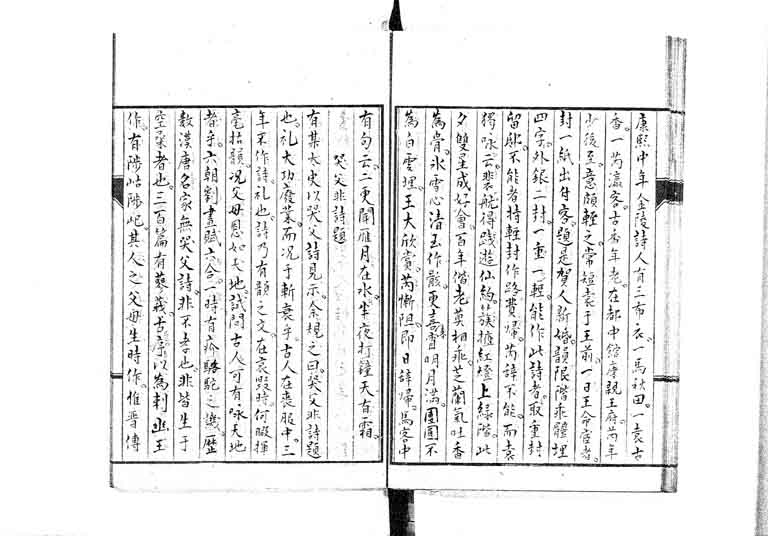 康熙中年金陵詩人有三布衣一馬秋田一袁古
香一芮瀛客古香年老在都中館康親王府芮年
少後至意頗輕之常短袁于王前一日王命宦者
封一紙出付客題是賀人新婚韻限階乖骸埋
四字外銀二封一重一輕能作此詩者取重封
留邸不能者持輕封作路費歸芮辭不能而袁
獨咏云裴航得踐遊仙約簇擁紅燈上綠階此
夕雙星成好會百年偕老莫相乖芝蘭氣吐香
為骨冰雪心清玉作骸更喜來宵明月滿團圓不
為白雲埋王大欣賞芮慚阻即日辭歸馬客中
有句云二更聞雁月在水半夜打鐘天有霜
哭父非詩題
有某太史以哭父詩見示余規之曰哭父非詩題
也礼大功廢業而況于斬衰乎古人在喪服中三
年不作詩礼也詩乃有韻之文在哀毀時何暇揮
毫拈韻況父母恩如天地試問古人可有咏天地
者乎六朝劉晝賦六合一時有疥駱駝之譏歷
數漢唐名家無哭父詩非不孝也非皆生于
空桑者也三百篇有蓼莪古序以為刺幽王
作有陟岵陟屺其人之父母生時作惟晋傅